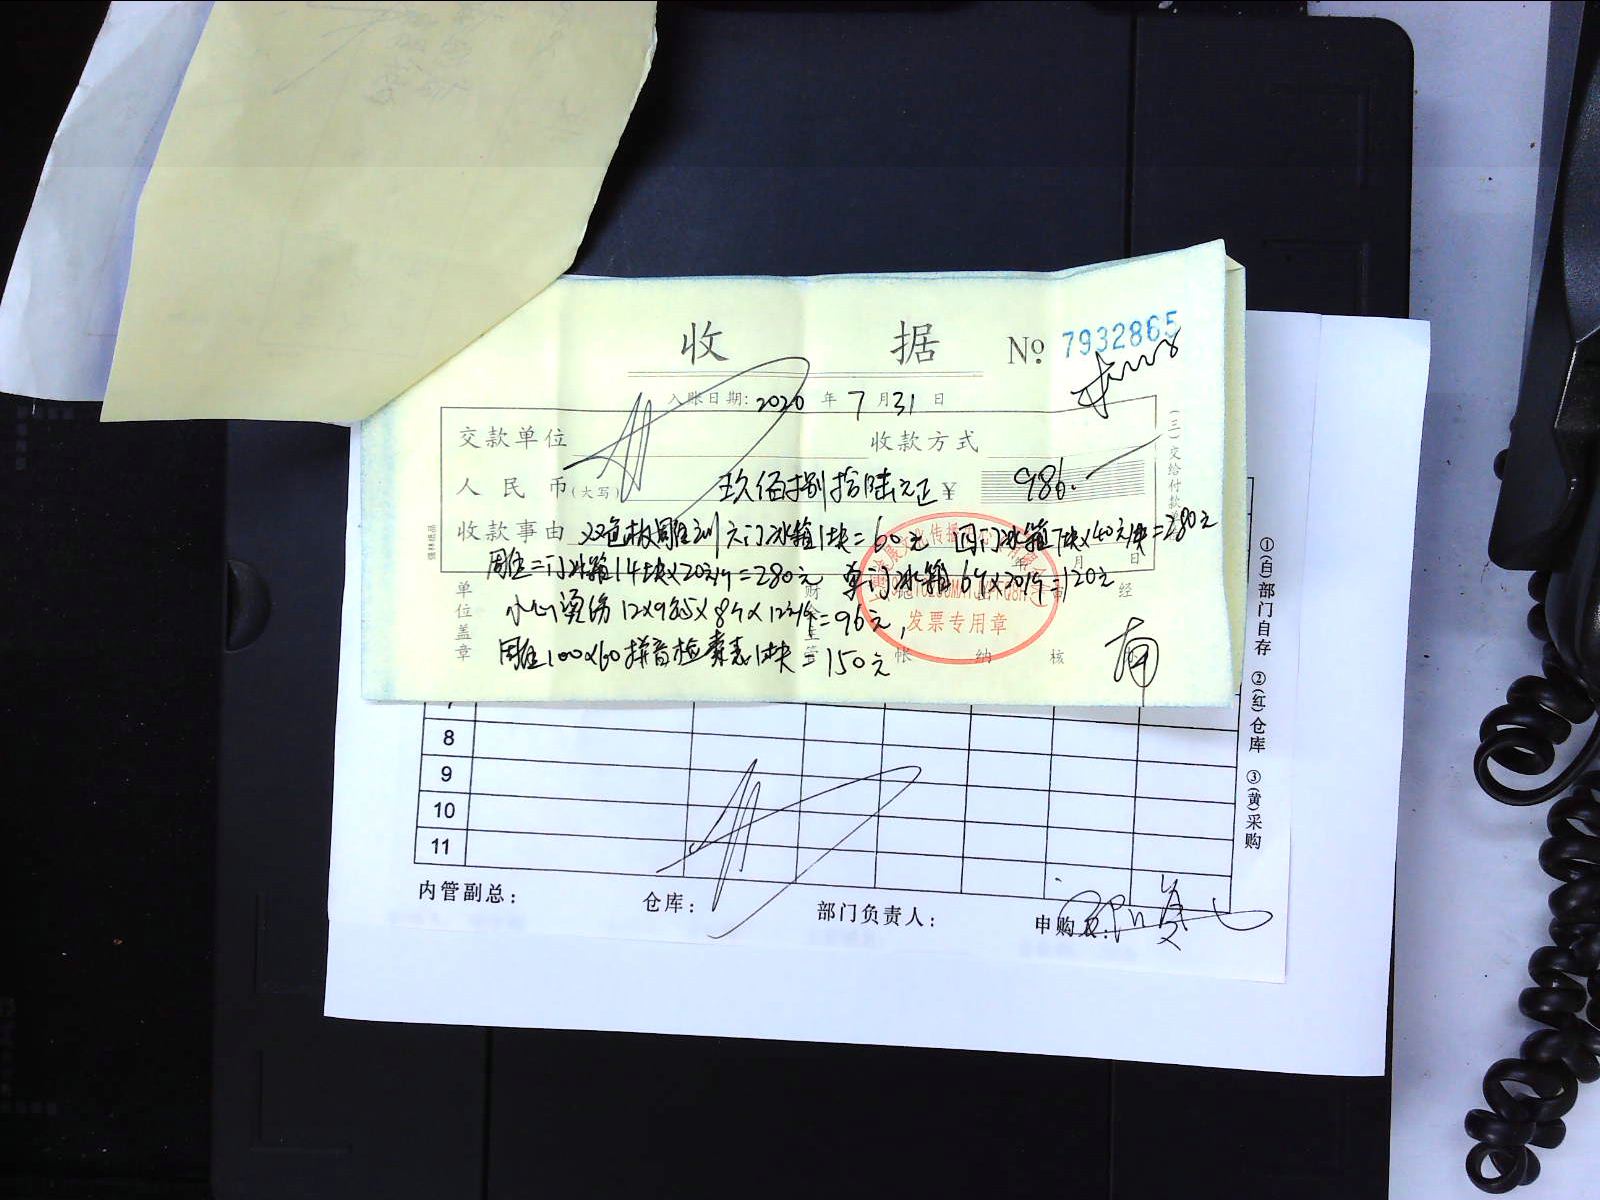 收 据 № 7932865
入账日期: 2020 年 7 月 31 日
交款单位 收款方式
人民币(大写) 玖佰捌拾陆元正 ¥ 986.
收款事由 双色板雕刻 六门冰箱1块=60元 四门冰箱7块×40元/块=280元
雕刻二门冰箱14块×20元/个=280元 单门冰箱6个×20/个=120元
小心烫伤12×9.5×8个×12元/个=96元,
100×60拼音检索表1块=150元
单位盖章 财 帐 纳 核 经
发票专用章
(三)交给付款
8
9
10
11
内管副总: 仓库: 部门负责人: 申购
①(白)部门自存 ②(红)仓库 ③(黄)采购